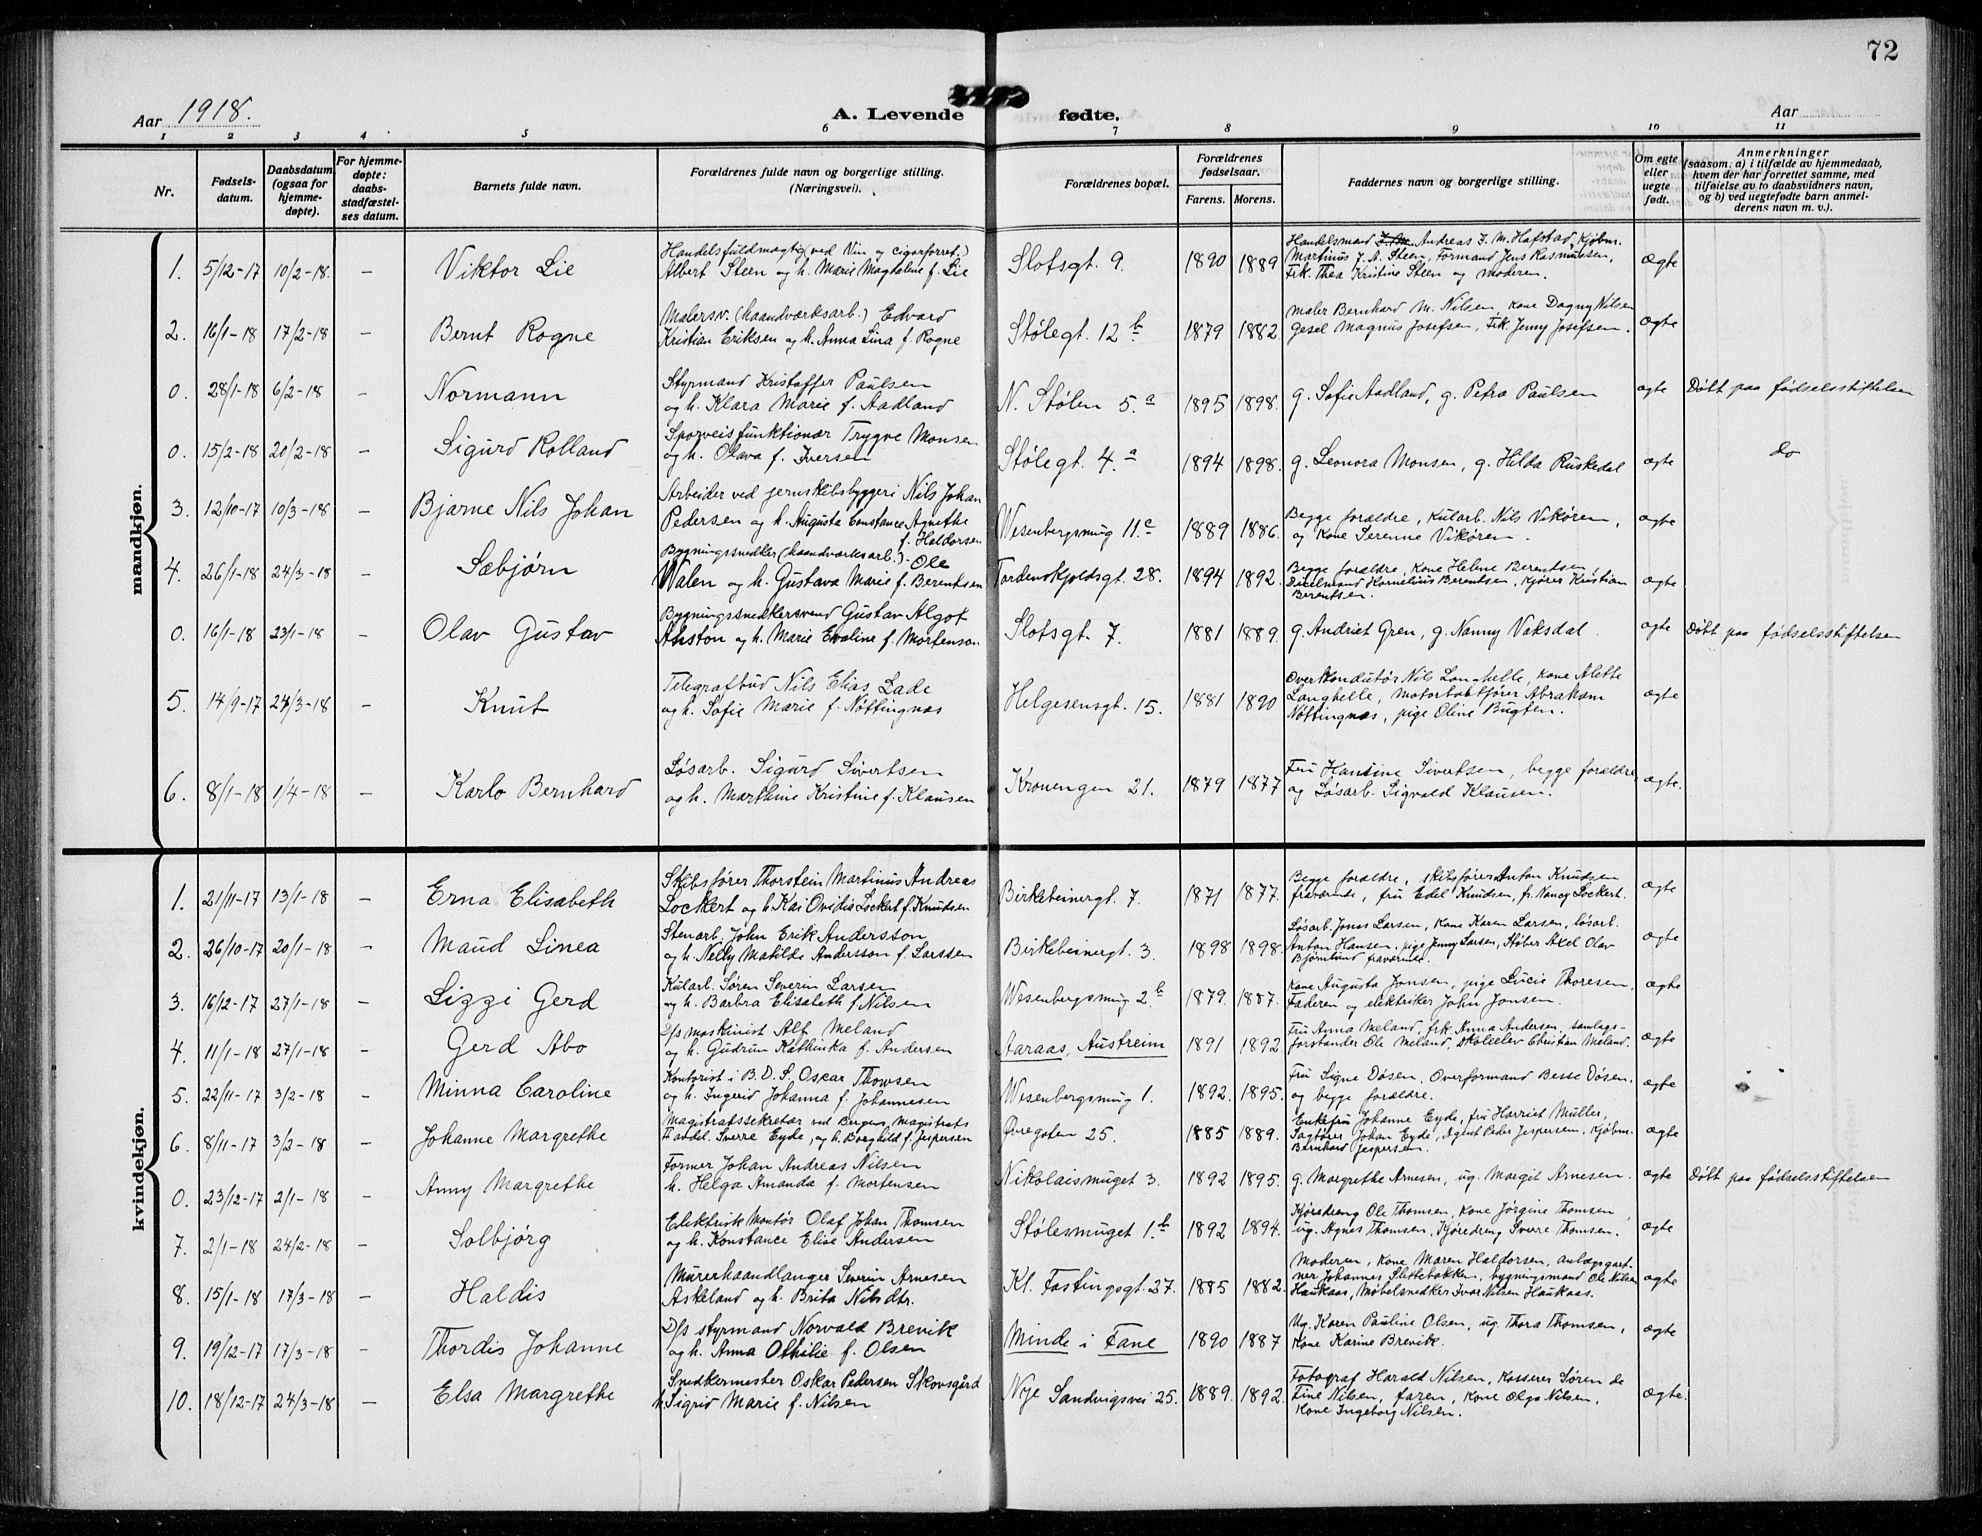 72
Aar 1918.
A. Levende fødte.
Aar
1 2 3 4 5 6 7 8 9 10 11
Nr.
Fødsels-
datum.
Daabsdatum
(ogsaa for
hjemme-
døpte).
For hjemme-
døpte:
daabs-
stadfæstel-
ses datum.
Barnets fulde navn.
Forældrenes fulde navn og borgerlige stilling.
(Næringsvei).
Forældrenes bopæl.
Forældrenes
fødselsaar.
Farens. Morens.
Faddernes navn og borgerlige stilling.
Om egte
eller
uegte
født.
Anmerkninger
(saasom: a) i tilfælde av hjemmedaab,
hvem der har forrettet samme, med
tilføielse av to daabsvidners navn,
og b) ved uegtefødte barn anmel-
derens navn m. v.).
mandkjøn.
Handelsfuldmægtig (ved Vin og cigarforret.)
1. 5/12-17 10/2-18. – Viktor Lie Albert Steen og h. Marie Magdalene f. Lie Slotsgt. 9. 1890 1889
Handelsmand Andreas J. M. Hafstad, Kjøbm.
Martinus J. A. Steen, Formand Jens Rasmussen,
Frk. Thea Kristine Steen og moderen. ægte
Malersv. (haandværksarb.) Edvard
2. 16/1-18 17/2-18 – Bernt Rogne Kristian Eriksen og h. Anna Lina f. Rogne Stølegt. 12 b 1879 1882
Maler Bernhard M. Nilsen, kone Dagny Nilsen
gesel Magnus Josefsen, Frk. Jenny Josefsen. ægte
Styrmand Kristoffer Paulsen
0. 28/1-18 6/2-18 – Normann og h. Klara Marie f. Aadland N. Stølen 5. a 1895 1898. g. Sofie Aadland, g. Petra Paulsen ægte Døbt paa fødselsstiftelsen
Sporveisfunktionær Trygve Monsen
0. 15/2-18 20/2-18 – Sigurd Rolland og h. Olava f. Iversen Stølegt. 4. a 1894 1898. g. Leonora Monsen, g. Hilda Ruskedal ægte do
Arbeider ved jernskibsbyggeri Nils Johan
3. 12/10-17 10/3-18 – Bjarne Nils Johan Pedersen og h. Augusta Constance Agnethe
f. Haldorsen Wesenbergsmug 11. c 1889 1886.
Begge forældre, Kularb. Nils Vikøren,
og Kone Serenne Vikøren. ægte
Bygningssnedker (haandværksarb.) Ole
4. 26/1-18 24/3-18 – Sæbjørn Walen og h. Gustava Marie f. Berentsen Tordenskjoldsgt. 28. 1894 1892.
Begge forældre, Kone Helene Berentsen
Kornelius Berentsen, kjører Kristian
Berentsen. ægte
Bygningssnedkersvend Gustav Algot
0. 16/1-18 23/1-18 – Olav Gustav og h. Marie Evaline f. Mortenson Slotsgt. 7. 1881 1889. g. Andriet Gren, g. Nanny Vaksdal. ægte Døbt paa fødselsstiftelsen
Telegrafbud Nils Elias Lade
5. 14/9-17 24/3-18 – Knut og h. Sofie Marie f. Nøttingnes Helgesensgt. 15. 1881 1890
Overkonduktør Nils Langhelle, kone Alette
Langhelle, motorbaatfører Abraham
Nøttingnæs, pige Oline Bugten. ægte
Løsarb. Sigurd Sivertsen
6. 8/1-18 1/4-18 – Karlo Bernhard og h. Marthine Kristine f. Klausen Kronengen 21. 1879 1877
Fru Hansine Sivertsen, begge forældre
og Løsarb. Sigvald Klausen. ægte.
kvindekjøn.
Skibsfører Thorstein Martinus Andreas
1. 21/11-17 13/1-18 – Erna Elisabeth Lockert og h. Kai Ovidia Lockert f. Knudsen Birkebeinergt. 7. 1871 1877.
Begge forældre, skibsfører Anton Knudsen
fraværende, fru Edel Knudsen, fr. Nancy Lockert. ægte
Stenarb. John Erik Andersson
2. 26/10-17 20/1-18 – Maud Linea og h. Nelly Matilde Andersson f. Larssen Birkebeinergt. 3. 1898 1898.
Løsarb. Jonas Larsen, Kone Karen Larsen, løsarb.
Anton Hansen, pige Jenny Larsen, Støber Axel Olav
Bjørnlund fraværende. ægte
Kularb. Søren Severin Larsen
3. 16/12-17 27/1-18 – Lizzi Gerd og h. Barbra Elisabeth f. Nilsen Wesenbergsmug 2 b 1879. 1887.
Kone Augusta Jonsen, pige Lucie Thoresen.
Faderen og elektriker John Jonsen. ægte
D/s maskinist Alf Meland
4. 11/1-18 27/1-18 – Gerd Abo og h. Gudrun Kathinka f. Andersen Aaraas, Austreim 1891 1892
Fru Anna Meland, frk. Anna Andersen, samlags-
forstander Ole Meland, Skoleelev Christian Meland. ægte
Kontorist i B. D. S. Oscar Thowsen
5. 22/11-17 3/2-18 – Minna Caroline og h. Ingerid Johanna f. Johannesen Wesenbergsmug 1. 1892. 1895.
Fru Signe Døsen, Overformand Besse Døsen.
og begge forældre. ægte
Magistratssekretær ved Bergens Magistrats
6. 8/11-17 3/2-18 – Johanne Margrethe Sverre Eyde, og h. Borghild f. Jespersen Øvregaten 25. 1885 1889.
Enkefru Johanne Eyde, fru Harriet Müller,
Sagfører Johan Eyde, Agent Peder Jespersen, Kjøbm.
Bernhard Jespersen. ægte
Former Johan Andreas Nilsen
0. 23/12-17 2/1-18 – Anny Margrethe h. Helga Amanda f. Mortensen Nikolaismuget 3. 1892 1895. g. Margrethe Arnesen, ug. Margit Arnesen. ægte Døbt paa fødselsstiftelsen
Elektrisk Montør Olaf Johan Thomsen
7. 2/1-18 24/2-18 – Solbjørg og h. Konstance Elise Andersen Stølesmuget 1. b 1892 1894.
Kjøredreng Ole Thomsen, Kone Jørgine Thomsen,
ug. Agnes Thomsen, Kjøredreng Sverre Thomsen. ægte
Murerhaandlanger Severin Arnesen
8. 15/1-18 17/3-18 – Haldis Askeland og h. Brita Nilsdtr. Kl. Fastingsgt. 27. 1885 1882.
Moderen, Kone Maren Haldorsen, anlægsgart-
ner Johannes Slettebakken, bygningsmand Ole Nilsen
Haukaas, Møbelsnedker Ivar Nilsen Haukaas. ægte
D/s styrmand Norvald Brevik
9. 19/12-17 17/3-18 – Thordis Johanne og h. Anna Othilie f. Olsen Minde i Fane 1890 1887
Ug. Karen Pauline Olsen, ug. Thora Thomsen,
Kone Karine Brevik. ægte
Snedkermester Oskar Pedersen Skovsgård
10. 18/12-17 24/3-18 – Elsa Margrethe h. Sigrid Marie f. Nilsen Nye Sandvigsvei 25. 1889. 1892.
Fotograf Harald Nilsen, Kasserer Søren de
Fine Nilsen, faren, Kone Olga Nilsen,
Kone Ingeborg Nilsen. ægte.